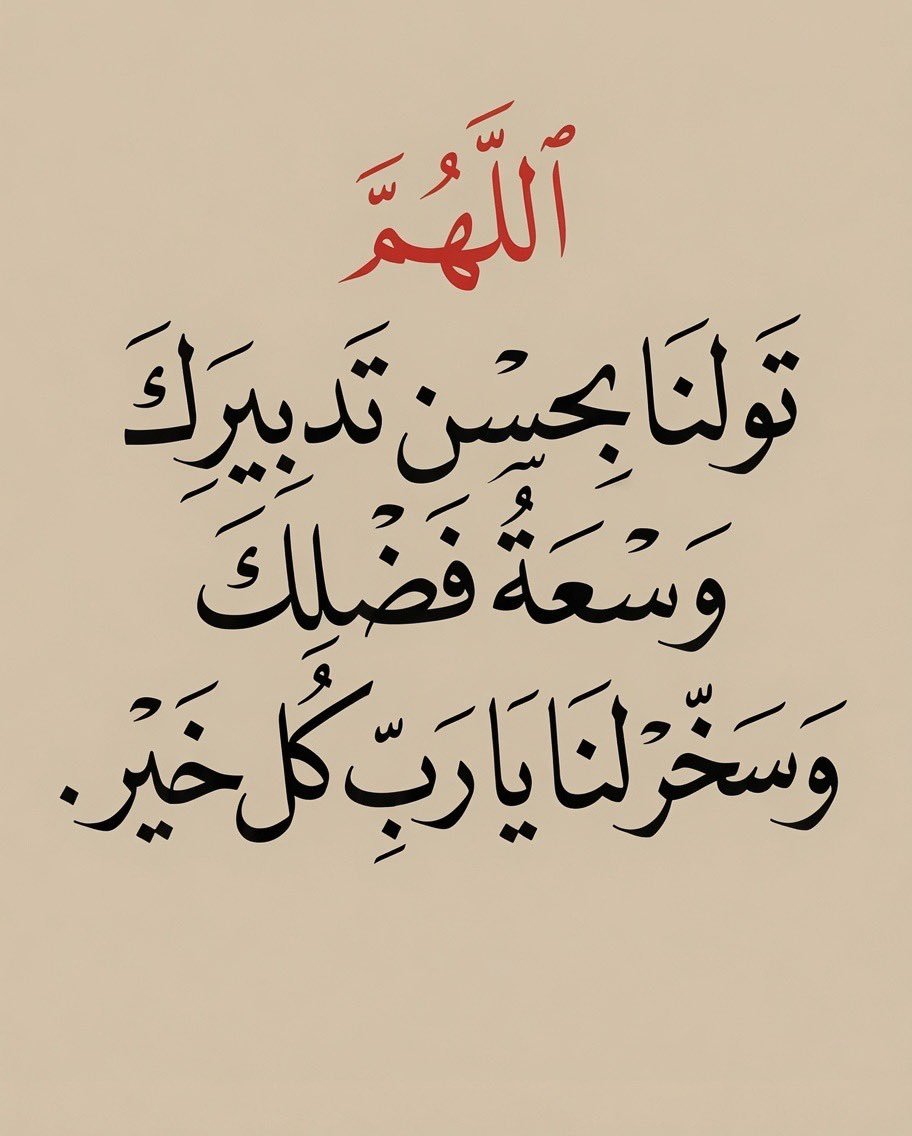 ٱللَّهُمَّ
تَولنَا بِحسْن تَدبِيرِكَ
وَسْعَةُ فَضْلِكَ
وَسَخّرْ لنَا يَا رَبِّ كُل خَيْر.